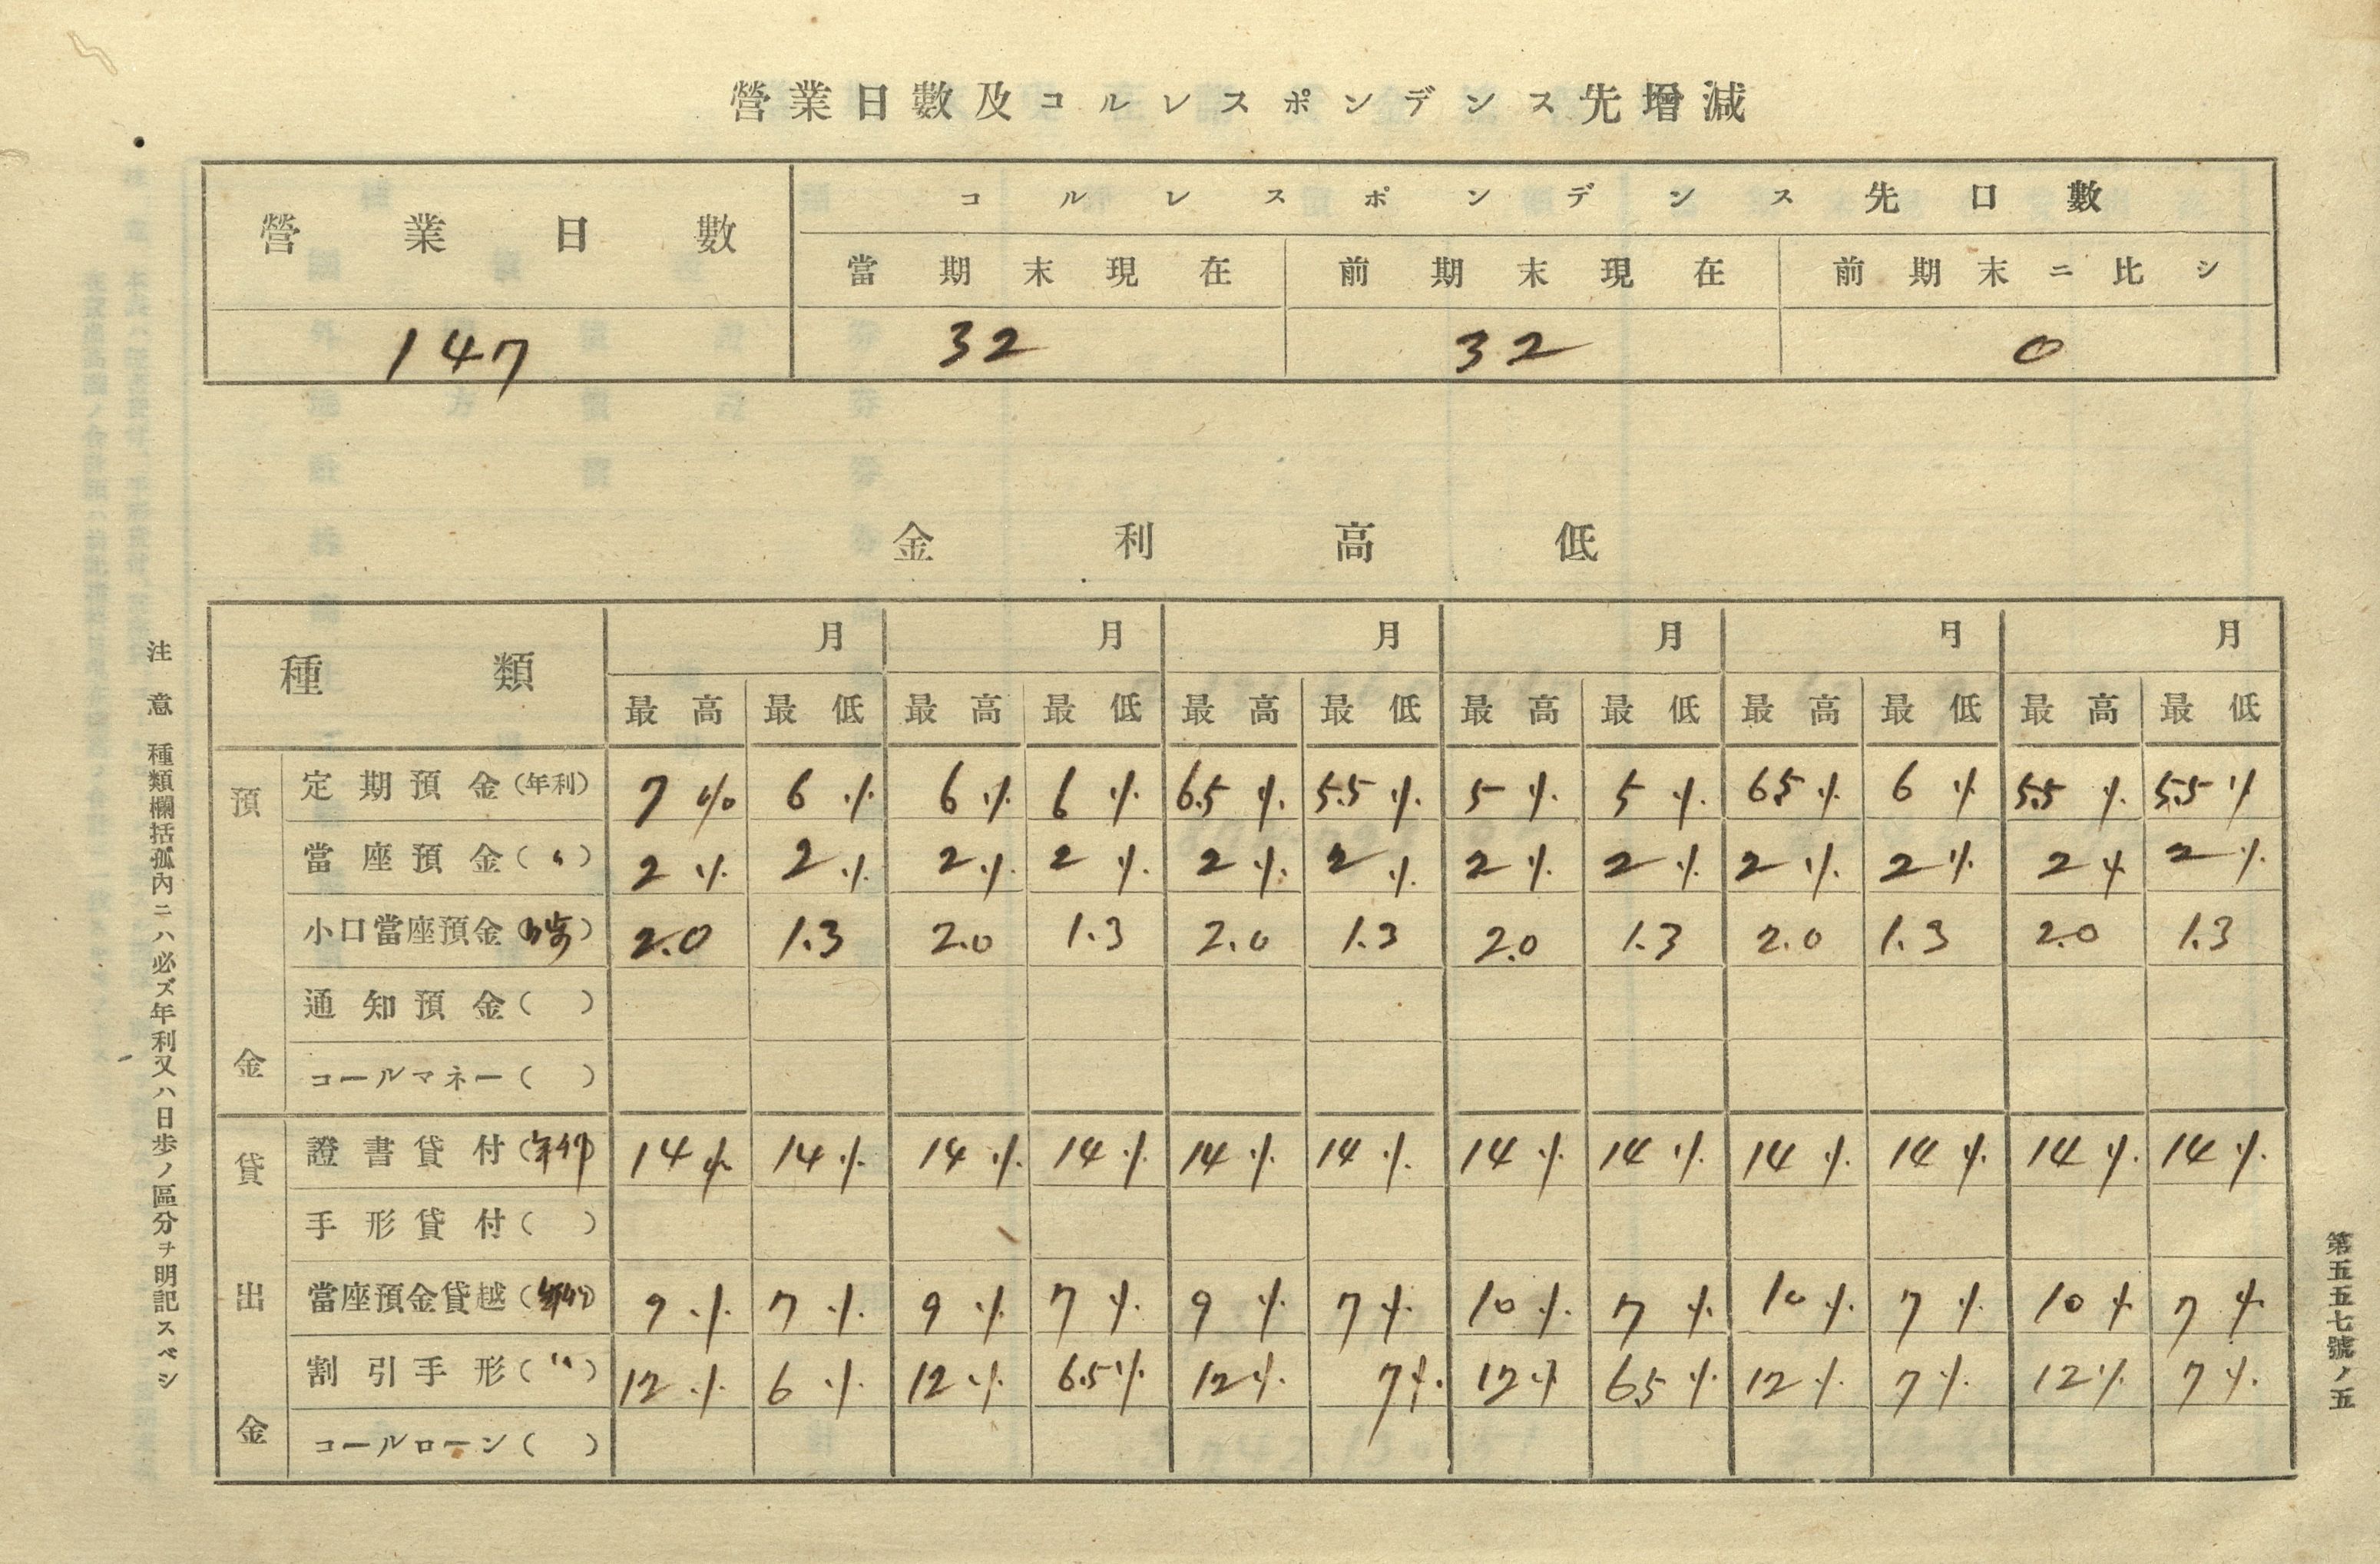 營業日數及コルレスポンデンス先增減
營業日數
コルレスポンデンス先口數
當期末現在 前期末現在 前期末ニ比シ
147 32 32 0
金利高低
種類 月 月 月 月 月 月
最高 最低 最高 最低 最高 最低 最高 最低 最高 最低 最高 最低
預金
定期預金(年利) 7% 6% 6% 6% 6.5% 5.5% 5% 5% 65% 6% 5.5% 5.5%
當座預金(〃) 2% 2% 2% 2% 2% 2% 2% 2% 2% 2% 2% 2%
小口當座預金(日歩) 2.0 1.3 2.0 1.3 2.0 1.3 2.0 1.3 2.0 1.3 2.0 1.3
通知預金( )
コールマネー( )
貸出金
證書貸付(年利) 14% 14% 14% 14% 14% 14% 14% 14% 14% 14% 14% 14%
手形貸付( )
當座預金貸越(年利) 9% 7% 9% 7% 9% 7% 10% 7% 10% 7% 10% 7%
割引手形(〃) 12% 6% 12% 6.5% 12% 7% 12% 6.5% 12% 7% 12% 7%
コールローン( )
注意 種類欄括孤內ニハ必ズ年利又ハ日步ノ區分ヲ明記スベシ
第五五五七號ノ五